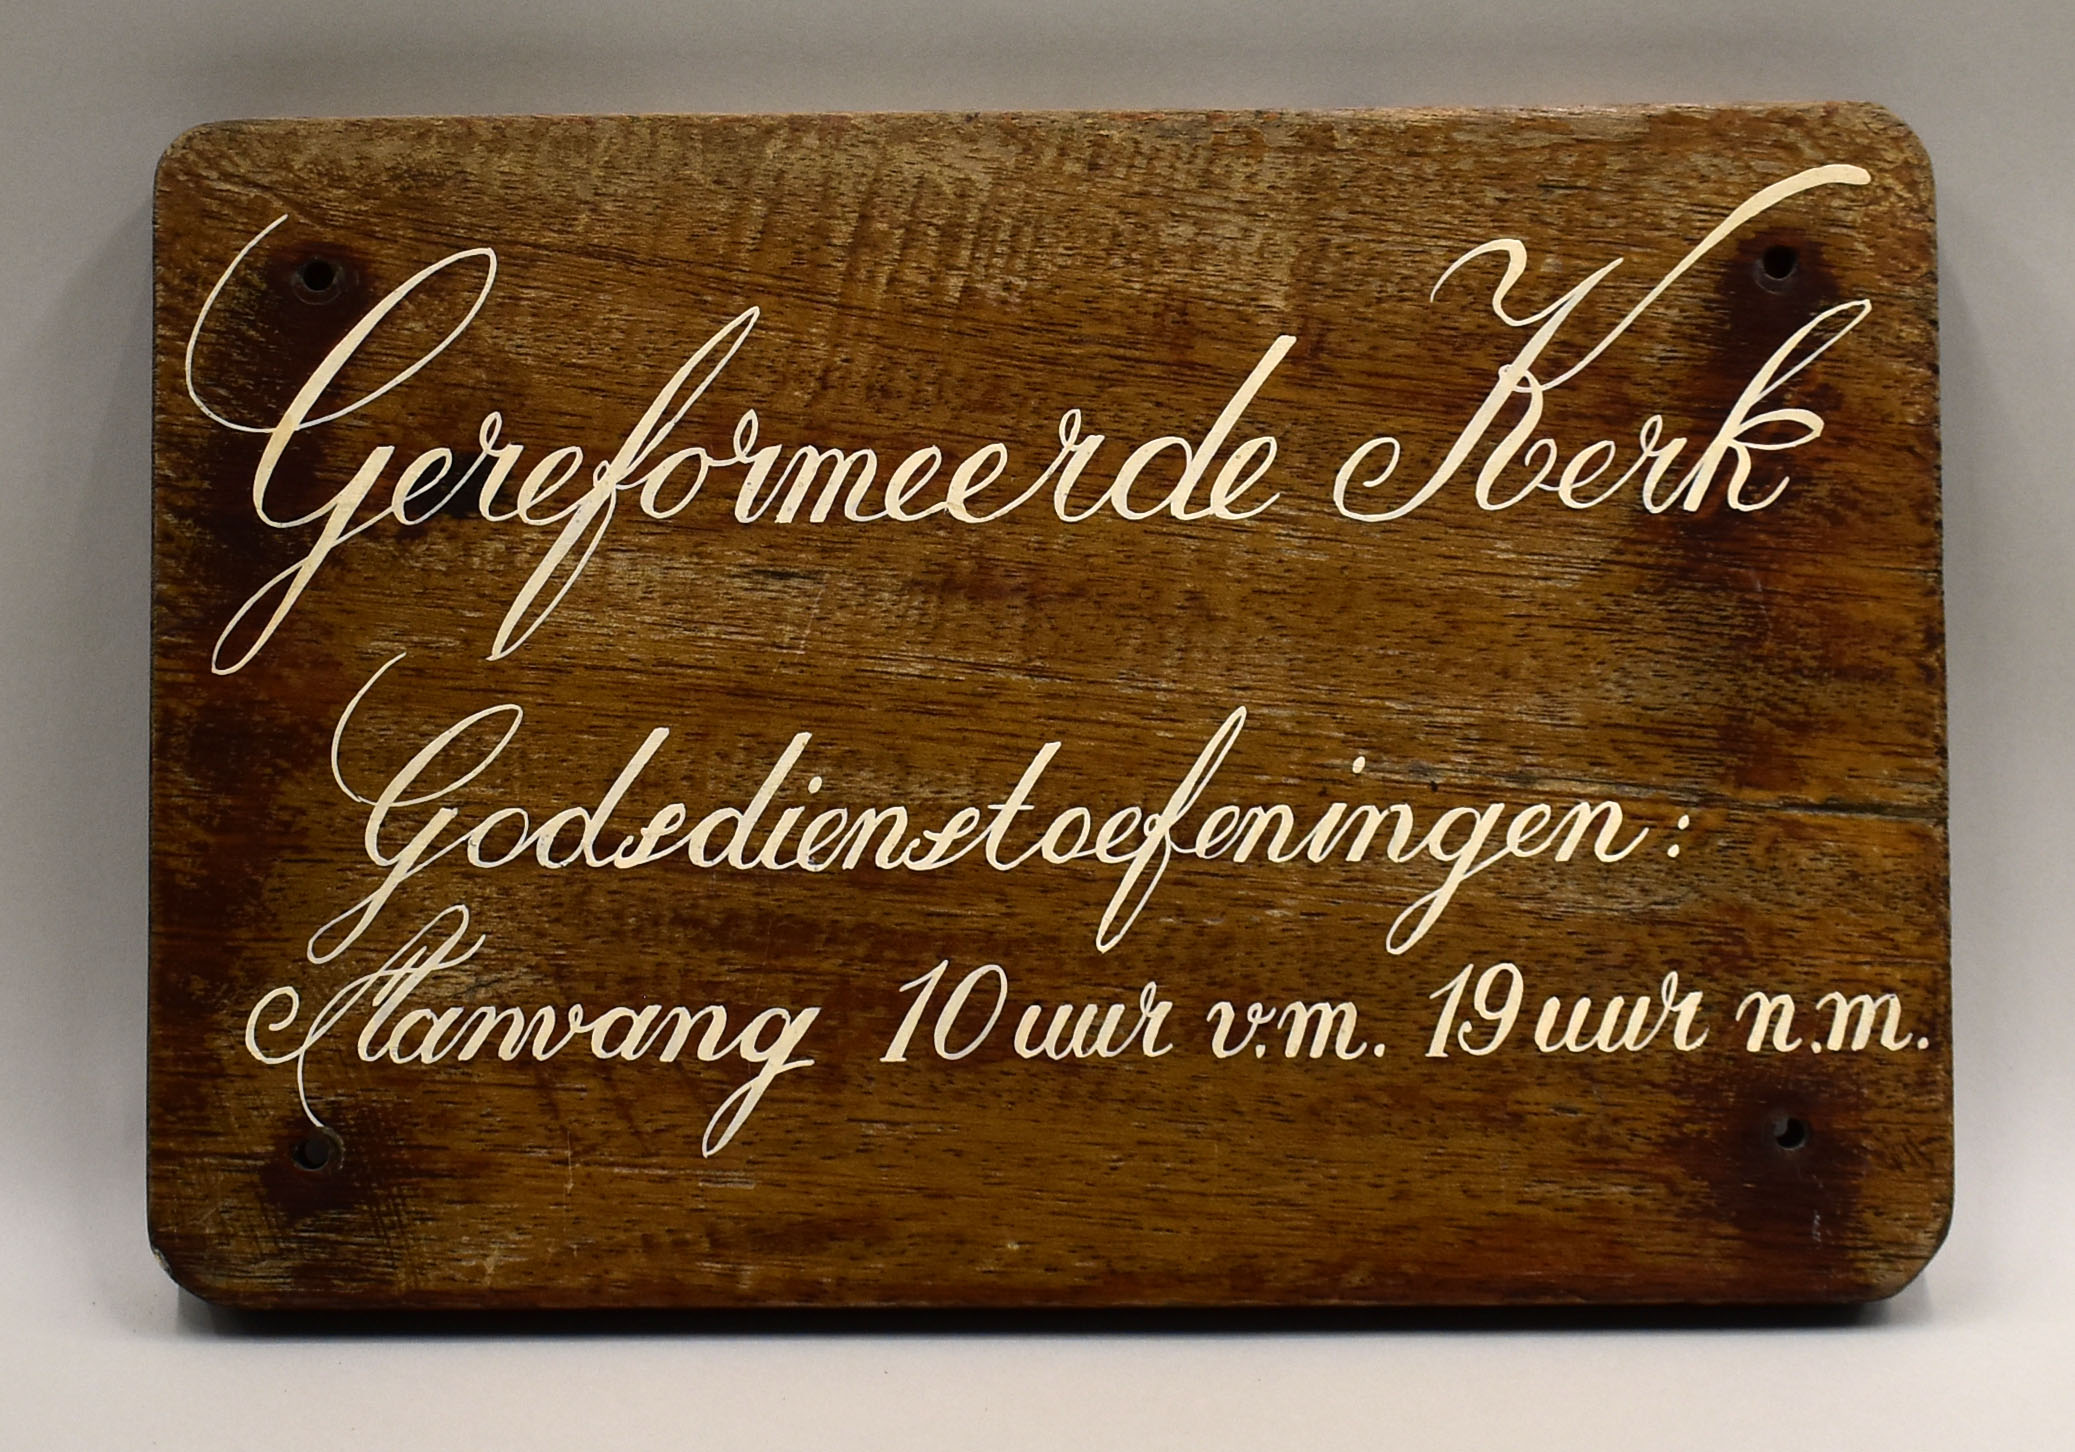 Gereformeerde Kerk
Godsdienstoefeningen:
Aanvang 10 uur v.m. 19 uur n.m.